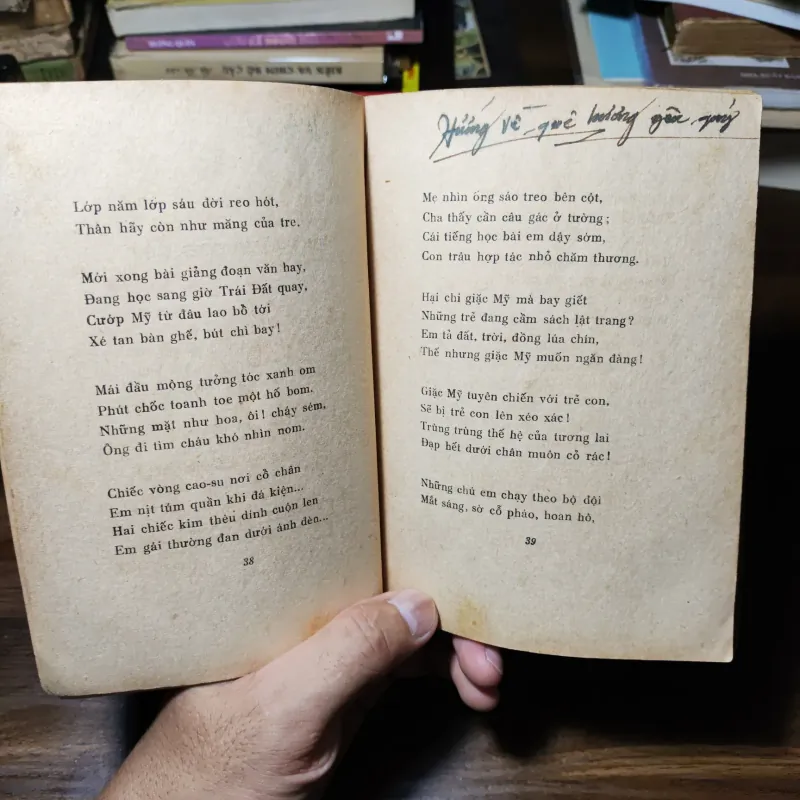 Lớp năm lớp sáu dời reo hót,
Thân hãy còn như măng của tre.
Mới xong bài giảng đoạn văn hay,
Đang học sang giờ Trái Đất quay,
Cướp Mỹ từ đâu lao bồ tới
Xé tan bàn ghế, bút chì bay!
Mái đầu mộng tưởng tóc xanh om
Phút chốc toanh toe một hố bom.
Những mặt như hoa, ôi! cháy sém,
Ông đi tìm cháu khó nhìn nom.
Chiếc vòng cao-su nơi cổ chân
Em nịt túm quần khi đá kiện...
Hai chiếc kim thêu dính cuộn len
Em gái thường đan dưới ánh đèn...
38
Hướng về quê hương yêu quý
Mẹ nhìn ống sáo treo bên cột,
Cha thấy cần câu gác ở tường;
Cái tiếng học bài em dậy sớm,
Con trâu hợp tác nhỏ chăm thương.
Hại chi giặc Mỹ mà bay giết
Những trẻ đang cầm sách lật trang?
Em tả đất, trời, đồng lúa chín,
Thế nhưng giặc Mỹ muốn ngăn đàng!
Giặc Mỹ tuyên chiến với trẻ con,
Sẽ bị trẻ con lên xéo xác!
Trùng trùng thế hệ của tương lai
Đạp hết dưới chân muôn cỏ rác!
Những chú em chạy theo bộ đội
Mắt sáng, sờ cổ pháo, hoan hô,
39